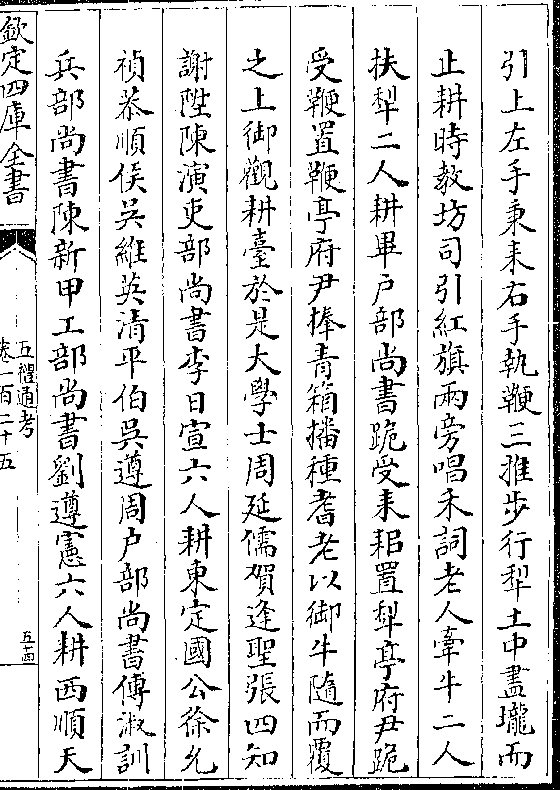 引上左手秉耒右手執鞭三推步行犁土中盡壠而
止耕時教坊司引紅旗兩旁唱禾詞老人牽牛二人
扶犁二人耕畢戶部尚書跪受耒耜置犁亭府尹跪
受鞭置鞭亭府尹捧青箱播種耆老以御牛隨而覆
之上御觀耕臺於是大學士周延儒賀逢聖張四知
謝陞陳演吏部尚書李日宣六人耕東定國公徐允
禎恭順侯吳維英清平伯吳遵周戶部尚書傅淑訓
兵部尚書陳新甲工部尚書劉遵憲六人耕西順天
欽定四庫全書
五禮通考
卷一百二十五
五十四